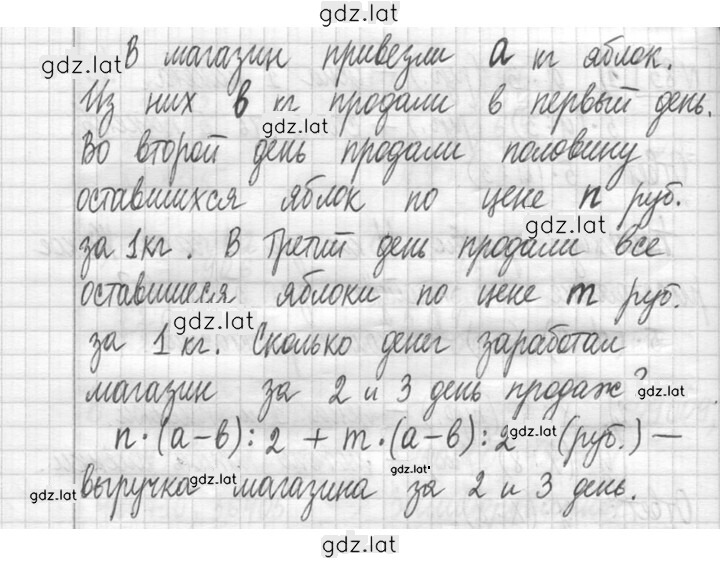 gdz.lat
gdz.lat В магазин привезли а кг яблок.
Из них в кг продали в первый день.
gdz.lat
Во второй день продали половину
оставшихся яблок по цене n руб.
gdz.lat
за 1кг. В третий день продали все
оставшиеся яблоки по цене m руб.
gdz.lat
за 1 кг. Сколько денег заработал
магазин за 2 и 3 день продаж? gdz.lat
n·(а-в):2 + m·(а-в):2 gdz.lat (руб.) —
gdz.lat gdz.lat
gdz.lat выручка магазина за 2 и 3 день.
gdz.lat